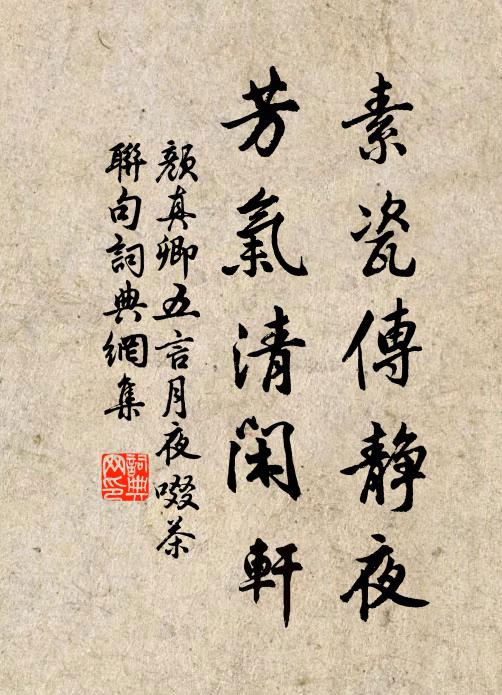 素瓷傳静夜
芳氣清閑軒
顏真卿五言月夜啜茶
聯句詞典網集
詞典網印